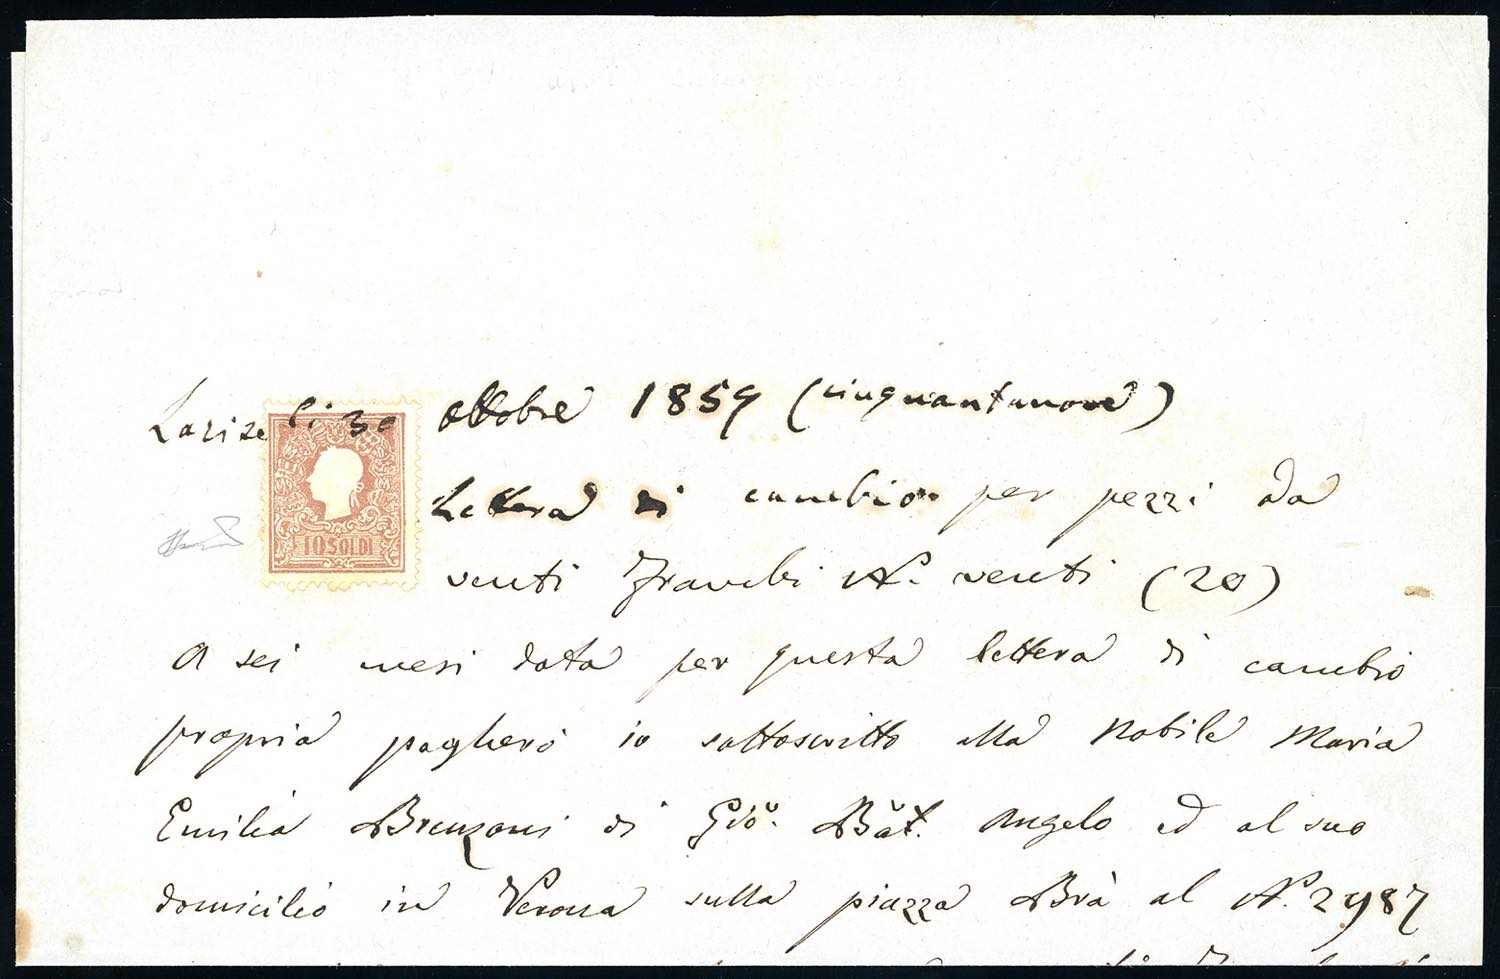 Lazise li 30 ottobre 1859 (cinquantanove)
10 SOLDI
Lettera di cambio per pezzi da
venti Franchi N. venti (20)
A sei mesi data per questa lettera di cambio
propria pagherò io sottoscritto alla Nobile Maria
Emilia Brenzoni di Gio. Bat. Angelo ed al suo
domicilio in Verona sulla piazza Brà al N. 2987